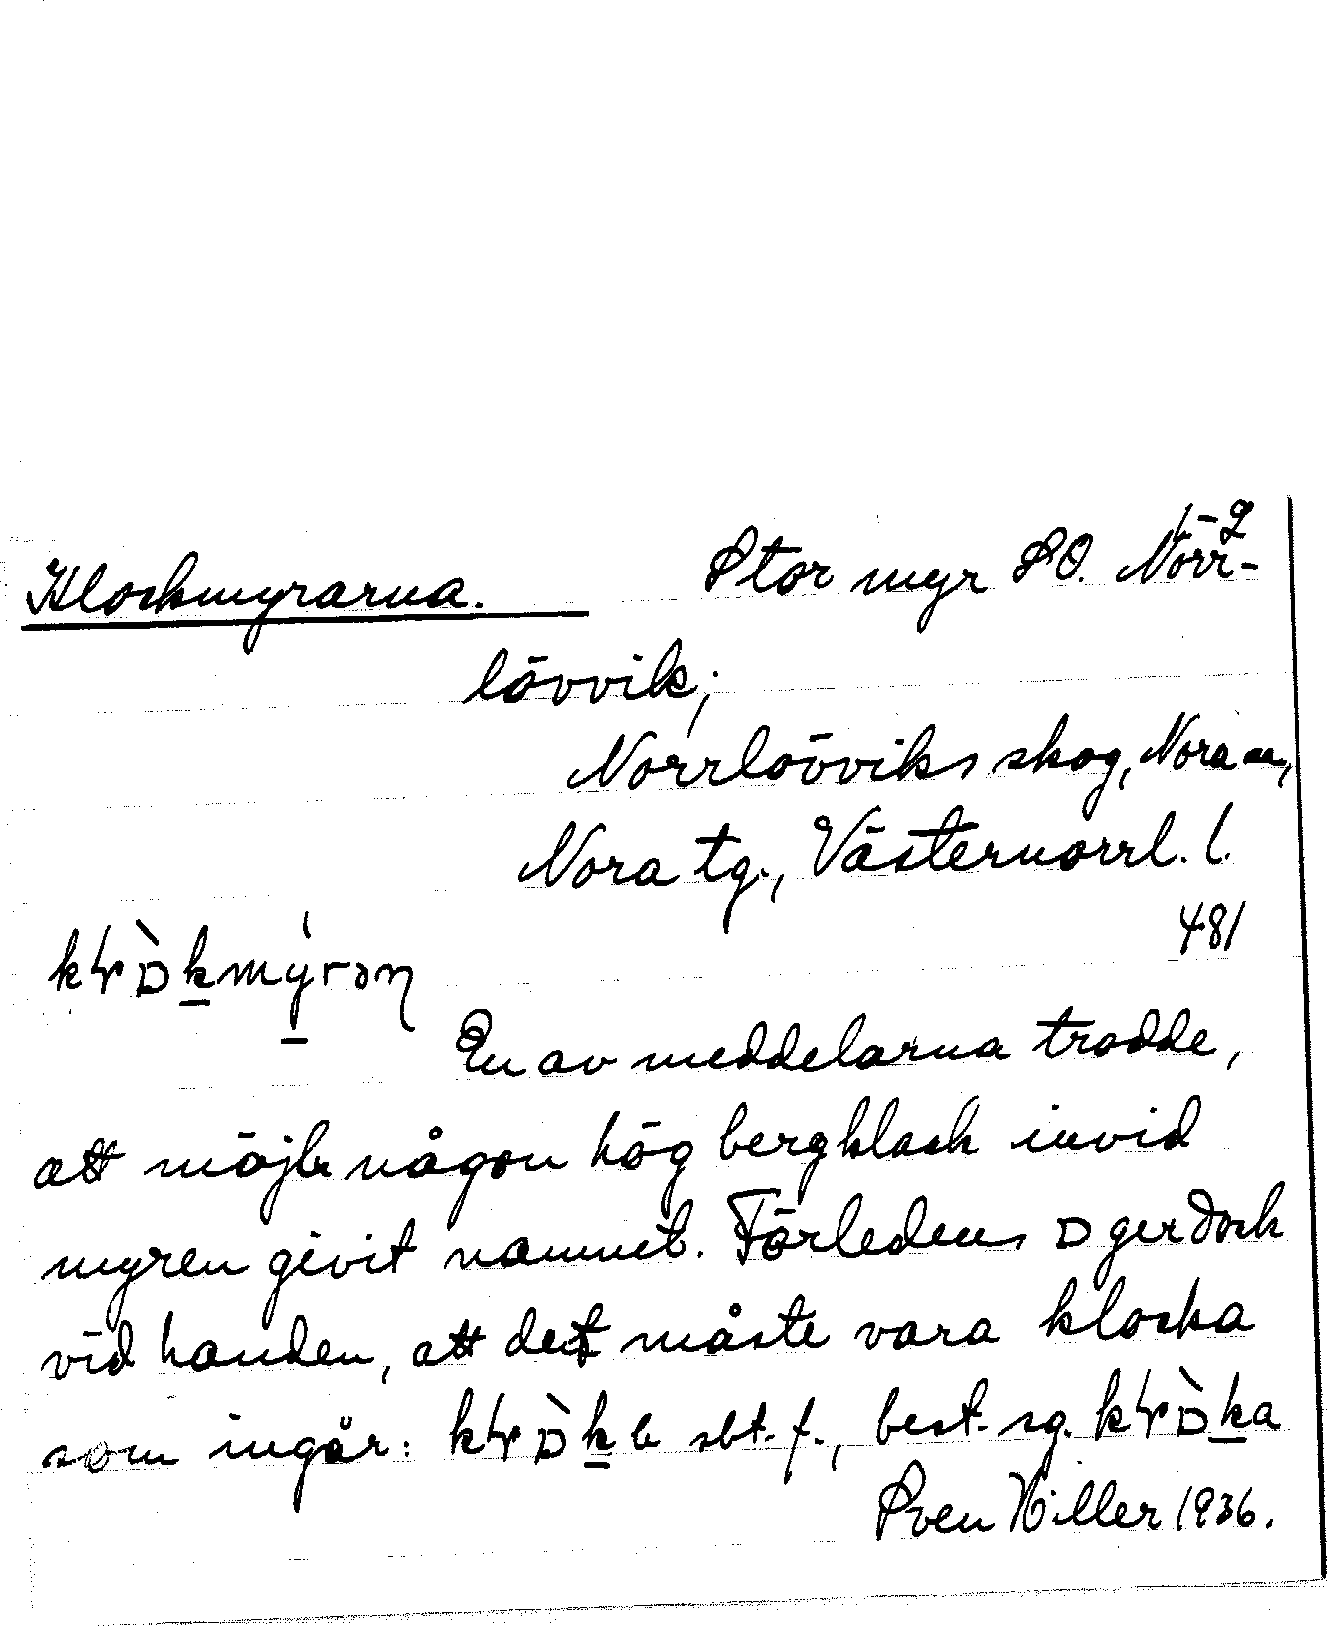 1-2
Klockmyrarna. Stor myr SO. Norr-
lövvik;
Norrlövviks skog, Nora sn,
Nora tg., Västernorrl. l.
481
En av meddelarna trodde,
att möjl. någon hög bergklack invid
myren givit namnet. Förledens ɒ ger dock
vid handen, att det måste vara klocka
som ingår: sbt. f., best. sg.
Sven Hiller 1936.